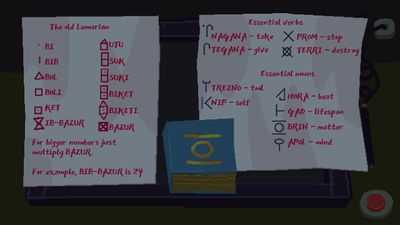 The old Lamarian
BI
BIB
BOL
BOLI
KET
IB-BAZUR
UTU
SUK
SUKI
BIKET
BIKETI
BAZUR
For bigger numbers just
multiply BAZUR.
For example, BIB-BAZUR is 24
Essential verbs
NAGANA – take
TEGANA – give
PROM – stop
TERRI – destroy
Essential nouns
NIF – self
HORA – boat
GAD – lifespan
– matter
– mind